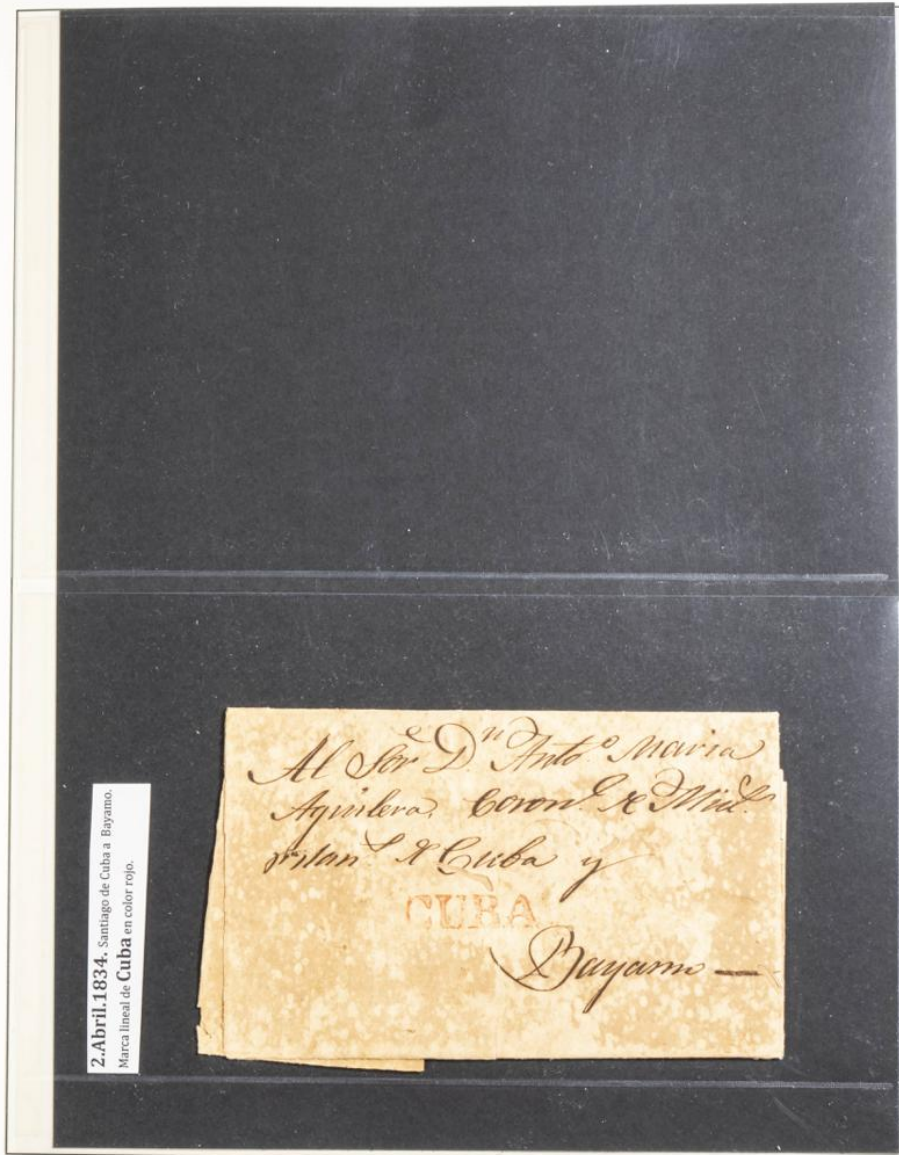 2.Abril.1834. Santiago de Cuba a Bayamo.
Marca lineal de Cuba en color rojo.
Al Sor Dn Anto Maria
Aguilera, Coronl de Mil.
de Cuba y
CUBA
Bayamo —